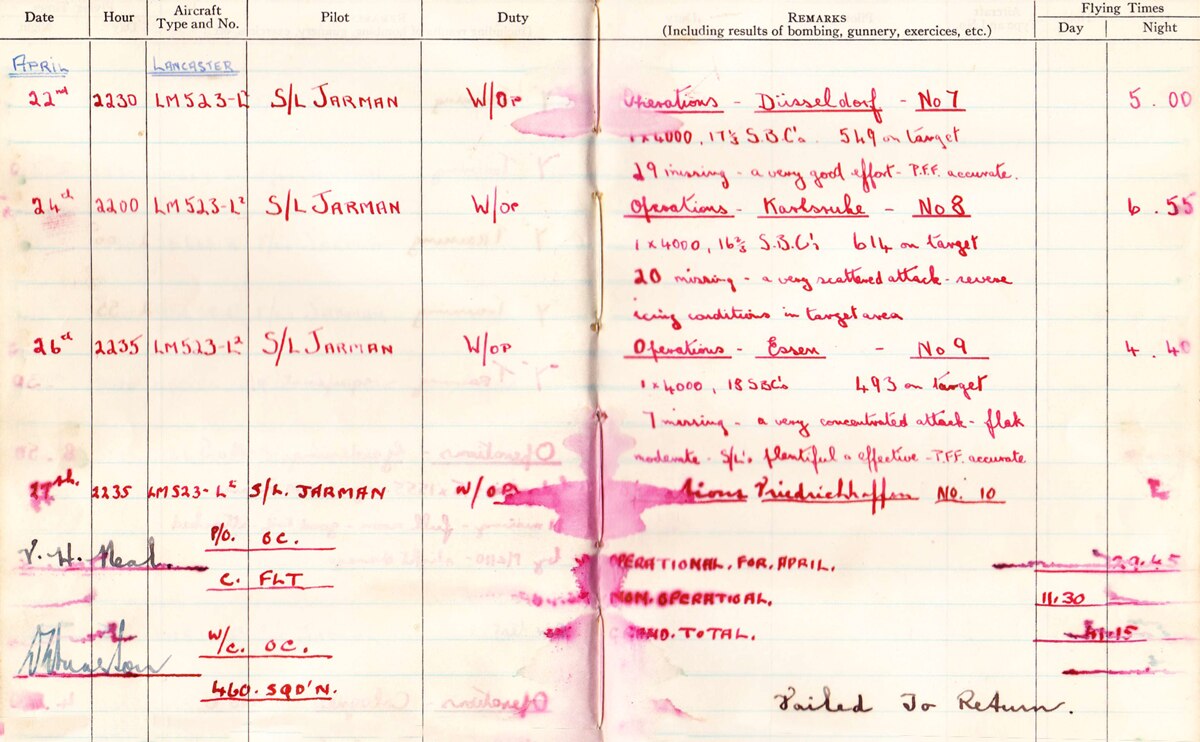 Date Hour Aircraft Type and No. Pilot Duty REMARKS (Including results of bombing, gunnery, exercices, etc.) Flying Times Day Night
APRIL LANCASTER
22nd 2230 LM523-L² S/L JARMAN W/OP Operations - Düsseldorf - No 7 5.00
1 x 4000, 17⅓ S.B.C's. 549 on target
29 missing - a very good effort - P.F.F. accurate.
24th 2200 LM523-L² S/L JARMAN W/OP Operations - Karlsruhe - No 8 6.55
1 x 4000, 16⅔ S.B.C's 614 on target
20 missing - a very scattered attack - severe
icing conditions in target area
26th 2235 LM523-L² S/L JARMAN W/OP Operations - Essen - No 9 4.40
1 x 4000, 18 SBC's 493 on target
7 missing - a very concentrated attack - flak
moderate - S/L's plentiful & effective - P.F.F. accurate
27th. 2235 LM523-L² S/L. JARMAN W/OP tions Friedrichhaffen No. 10
P/O. OC.
V. H. Neal. OPERATIONAL. FOR. APRIL. 29.45
C. FLT
NON. OPERATIONAL. 11.30
W/C. OC. GRAND. TOTAL. 41.15
460. SQD'N.
Failed To Return.